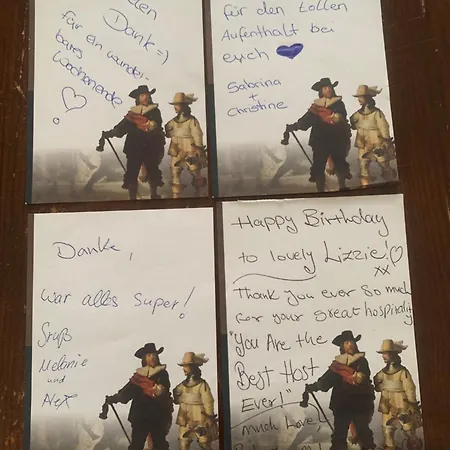 Danke =)
für ein wunder-
bares
Wochenende
!
für den tollen
Aufenthalt bei
euch
Sabrina
+
Christine
Danke,
War alles super!
Gruß
Melanie
und
Alex
Happy Birthday
to lovely Lizzie!
xx
Thank you ever so much
for your great hospitality
"You Are the
Best Host
Ever!"
much Love